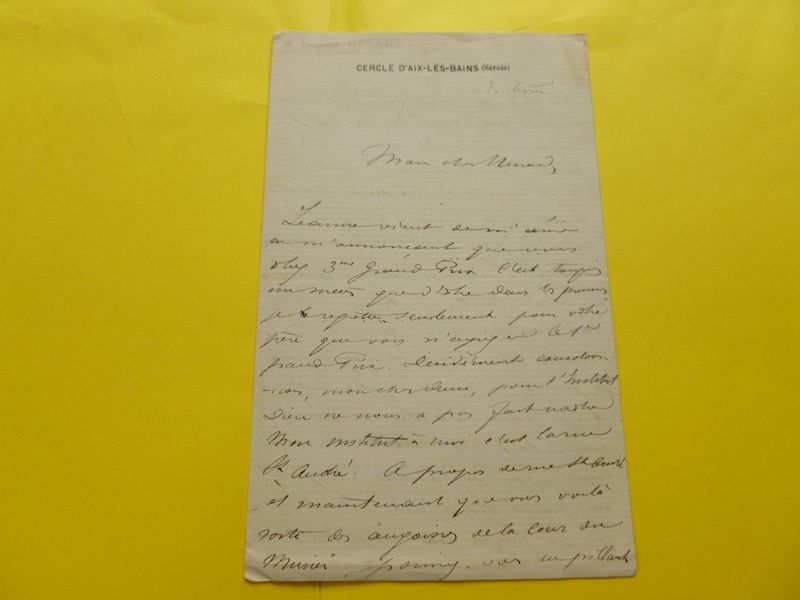 CERCLE D'AIX-LES-BAINS (Savoie)
7.
Mon cher
Jeanne vient de m'
en m'annonçant que vous
3me Grand Prix C'est toujours
que d'être dans les premiers
je regrette seulement pour votre
père que vous n'ayez eu le 1er
grand Prix. Décidément
-nous, mon cher ami, pour l'Institut
Dieu ne nous a pas fait naître
Mon institut à moi c'est la rue
St André. A propos de rue St André
et maintenant que vous voilà
sorti des "angoisses de la Cour du
Murier"